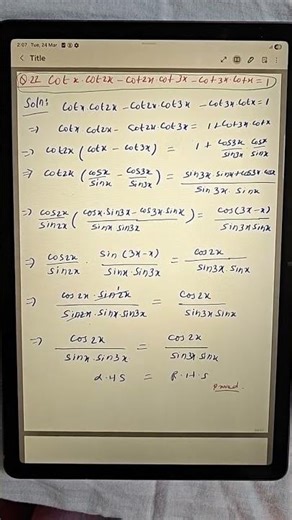 2:07 Tue, 24 Mar
Title
Q 22 cotx.cot2x - cot2x.cot3x - cot3x.cotx = 1
Soln: cotx cot2x - cot2x cot3x - cot3x.cotx = 1
=> cotx cot2x - cot2x cot3x = 1 + cot3x.cotx
=> cot2x (cotx - cot3x) = 1 + cos3x/sin3x cosx/sinx
=> cot2x (cosx/sinx - cos3x/sin3x) = sin3x.sinx + cos3x cosx/sin3x.sinx
=> cos2x/sin2x (cosx.sin3x - cos3x.sinx/sinx sin3x) = cos(3x-x)/sin3x sinx
=> cos2x/sin2x . sin(3x-x)/sinx.sin3x = cos2x/sin3x.sinx
=> cos2x.sin2x/sin2x.sinx.sin3x = cos2x/sin3x sinx
=> cos2x/sinx.sin3x = cos2x/sin3x sinx
L.H.S = R.H.S